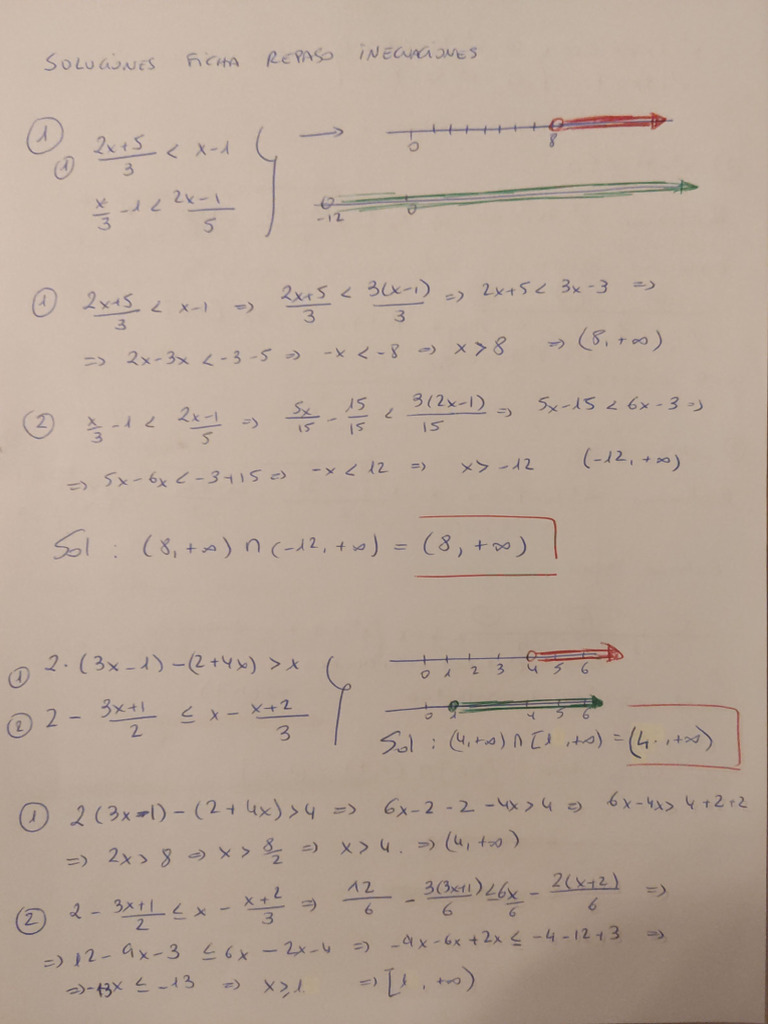 SOLUCIONES FICHA REPASO INECUACIONES
① ① (2x+5)/3 < x-1 →
0 8
x/3 -1 < (2x-1)/5
-12 0
① (2x+5)/3 < x-1 ⇒ (2x+5)/3 < 3(x-1)/3 ⇒ 2x+5 < 3x-3 ⇒
⇒ 2x-3x < -3-5 ⇒ -x < -8 ⇒ x > 8 ⇒ (8, +∞)
② x/3 -1 < (2x-1)/5 ⇒ 5x/15 - 15/15 < 3(2x-1)/15 ⇒ 5x-15 < 6x-3 ⇒
⇒ 5x-6x < -3+15 ⇒ -x < 12 ⇒ x > -12 (-12, +∞)
Sol : (8, +∞) ∩ (-12, +∞) = (8, +∞)
① 2·(3x-1)-(2+4x) > x
0 1 2 3 4 5 6
② 2 - (3x+1)/2 ≤ x - (x+2)/3
0 1 4 5 6
Sol : (4, +∞) ∩ [1, +∞) = (4, +∞)
① 2(3x-1)-(2+4x) > 4 ⇒ 6x-2-2-4x > 4 ⇒ 6x-4x > 4+2+2
⇒ 2x > 8 ⇒ x > 8/2 ⇒ x > 4. ⇒ (4, +∞)
② 2 - (3x+1)/2 ≤ x - (x+2)/3 ⇒ 12/6 - 3(3x+1)/6 ≤ 6x/6 - 2(x+2)/6 ⇒
⇒ 12-9x-3 ≤ 6x-2x-4 ⇒ -9x-6x+2x ≤ -4-12+3 ⇒
⇒ -13x ≤ -13 ⇒ x ≥ 1 ⇒ [1, +∞)